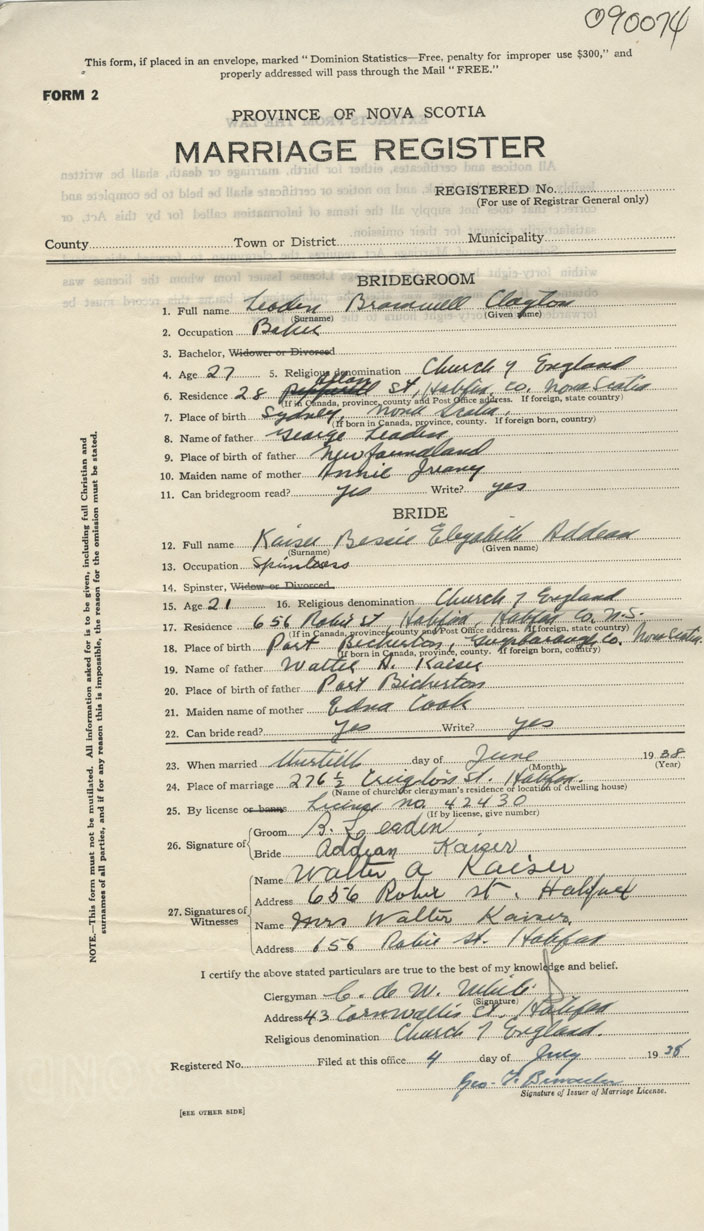 090074
This form, if placed in an envelope, marked "Dominion Statistics—Free, penalty for improper use $300," and
properly addressed will pass through the Mail "FREE."
FORM 2
PROVINCE OF NOVA SCOTIA
MARRIAGE REGISTER
REGISTERED No.
(For use of Registrar General only)
County Town or District Municipality
BRIDEGROOM
1. Full name Leaden Bramwell Clayton
(Surname) (Given name)
2. Occupation Baker
3. Bachelor, Widower or Divorced
4. Age 27 5. Religious denomination Church of England
6. Residence 28 Allan St, Halifax, Co. Nova Scotia
(If in Canada, province, county and Post Office address. If foreign, state country)
7. Place of birth Sydney, Nova Scotia,
(If born in Canada, province, county. If foreign born, country)
8. Name of father George Leaden
9. Place of father Newfoundland
10. Maiden name of mother Annie
11. Can bridegroom read? yes Write? yes
BRIDE
12. Full name Kaiser Bessie Elizabeth Addean
(Surname) (Given name)
13. Occupation
14. Spinster, Widow or Divorced
15. Age 21 16. Religious denomination Church of England
17. Residence 656 Robie St, Halifax, Halifax Co. N.S.
(If in Canada, province county and Post Office address. If foreign, state country)
18. Place of birth Port Bickerton, Co. Nova Scotia.
(If born in Canada, province, county. If foreign born, country)
19. Name of father Walter A. Kaiser
20. Place of birth of father Port Bickerton
21. Maiden name of mother Edna Cook
22. Can bride read? yes Write? yes
23. When married day of June 1938
(Month) (Year)
24. Place of marriage 276 ½ St. Halifax.
(Name of church or clergyman's residence or location of dwelling house)
25. By license or banns License no. 42430
(If by license, give number)
26. Signature of Groom B. Leaden
Bride Addean Kaiser
27. Signatures of Witnesses
Name Walter A Kaiser
Address 656 Robie St. Halifax
Name Mrs Walter Kaiser
Address 656 Robie St. Halifax
I certify the above stated particulars are true to the best of my knowledge and belief.
Clergyman C. de W. White
(Signature)
Address 43 Cornwallis St. Halifax
Religious denomination Church of England.
Registered No. Filed at this office 4 day of July 1938
Geo. F.
Signature of Issuer of Marriage License.
[SEE OTHER SIDE]
NOTE.—This form must not be mutilated. All information asked for is to be given, including full Christian and
surnames of all parties, and if for any reason this is impossible, the reason for the omission must be stated.